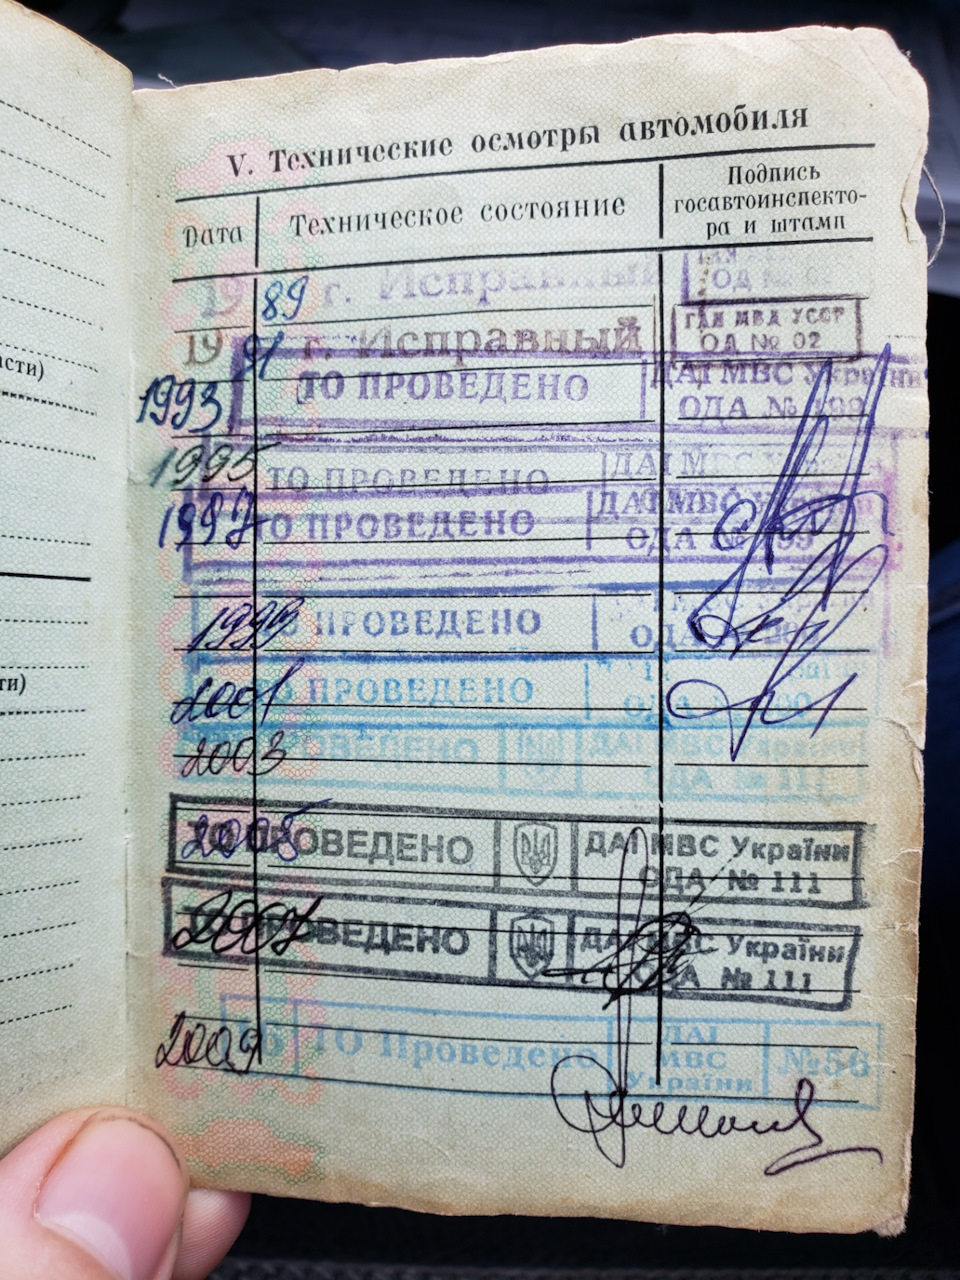 V. Технические осмотры автомобиля
Дата
Техническое состояние
Подпись
госавтоинспекто-
ра и штамп
1989 г. Исправный
ОД № 02
1991 г. Исправный
ГАИ МВД УССР
ОД № 02
1993
ТО ПРОВЕДЕНО
ДАІ МВС України
ОДА № 199
1995
ТО ПРОВЕДЕНО
ДАІ М
1997
ТО ПРОВЕДЕНО
ДАІ МВС Україн
ОДА № 99
1999
ТО ПРОВЕДЕНО
ОДА
2001
ТО ПРОВЕДЕНО
ОДА
2003
ПРОВЕДЕНО
ДАІ МВС України
ОДА № 111
2005
ТО ПРОВЕДЕНО
ДАІ МВС України
ОДА № 111
2007
ПРОВЕДЕНО
ДАІ МВС України
ОДА № 111
2009
ТО Проведено
ДАІ
МВС
України
№56
сти)
ти)